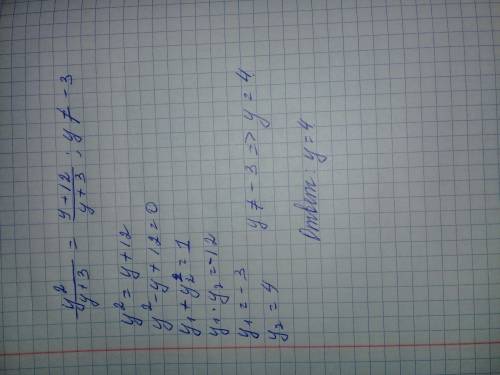 y²/(y+3) = (y+12)/(y+3) ; y ≠ -3
y² = y + 12
y² - y + 12 = 0
y₁ + y₂ = 1
y₁ · y₂ = -12
y₁ = -3
y₂ = 4 y ≠ -3 => y = 4
Ответ: y = 4